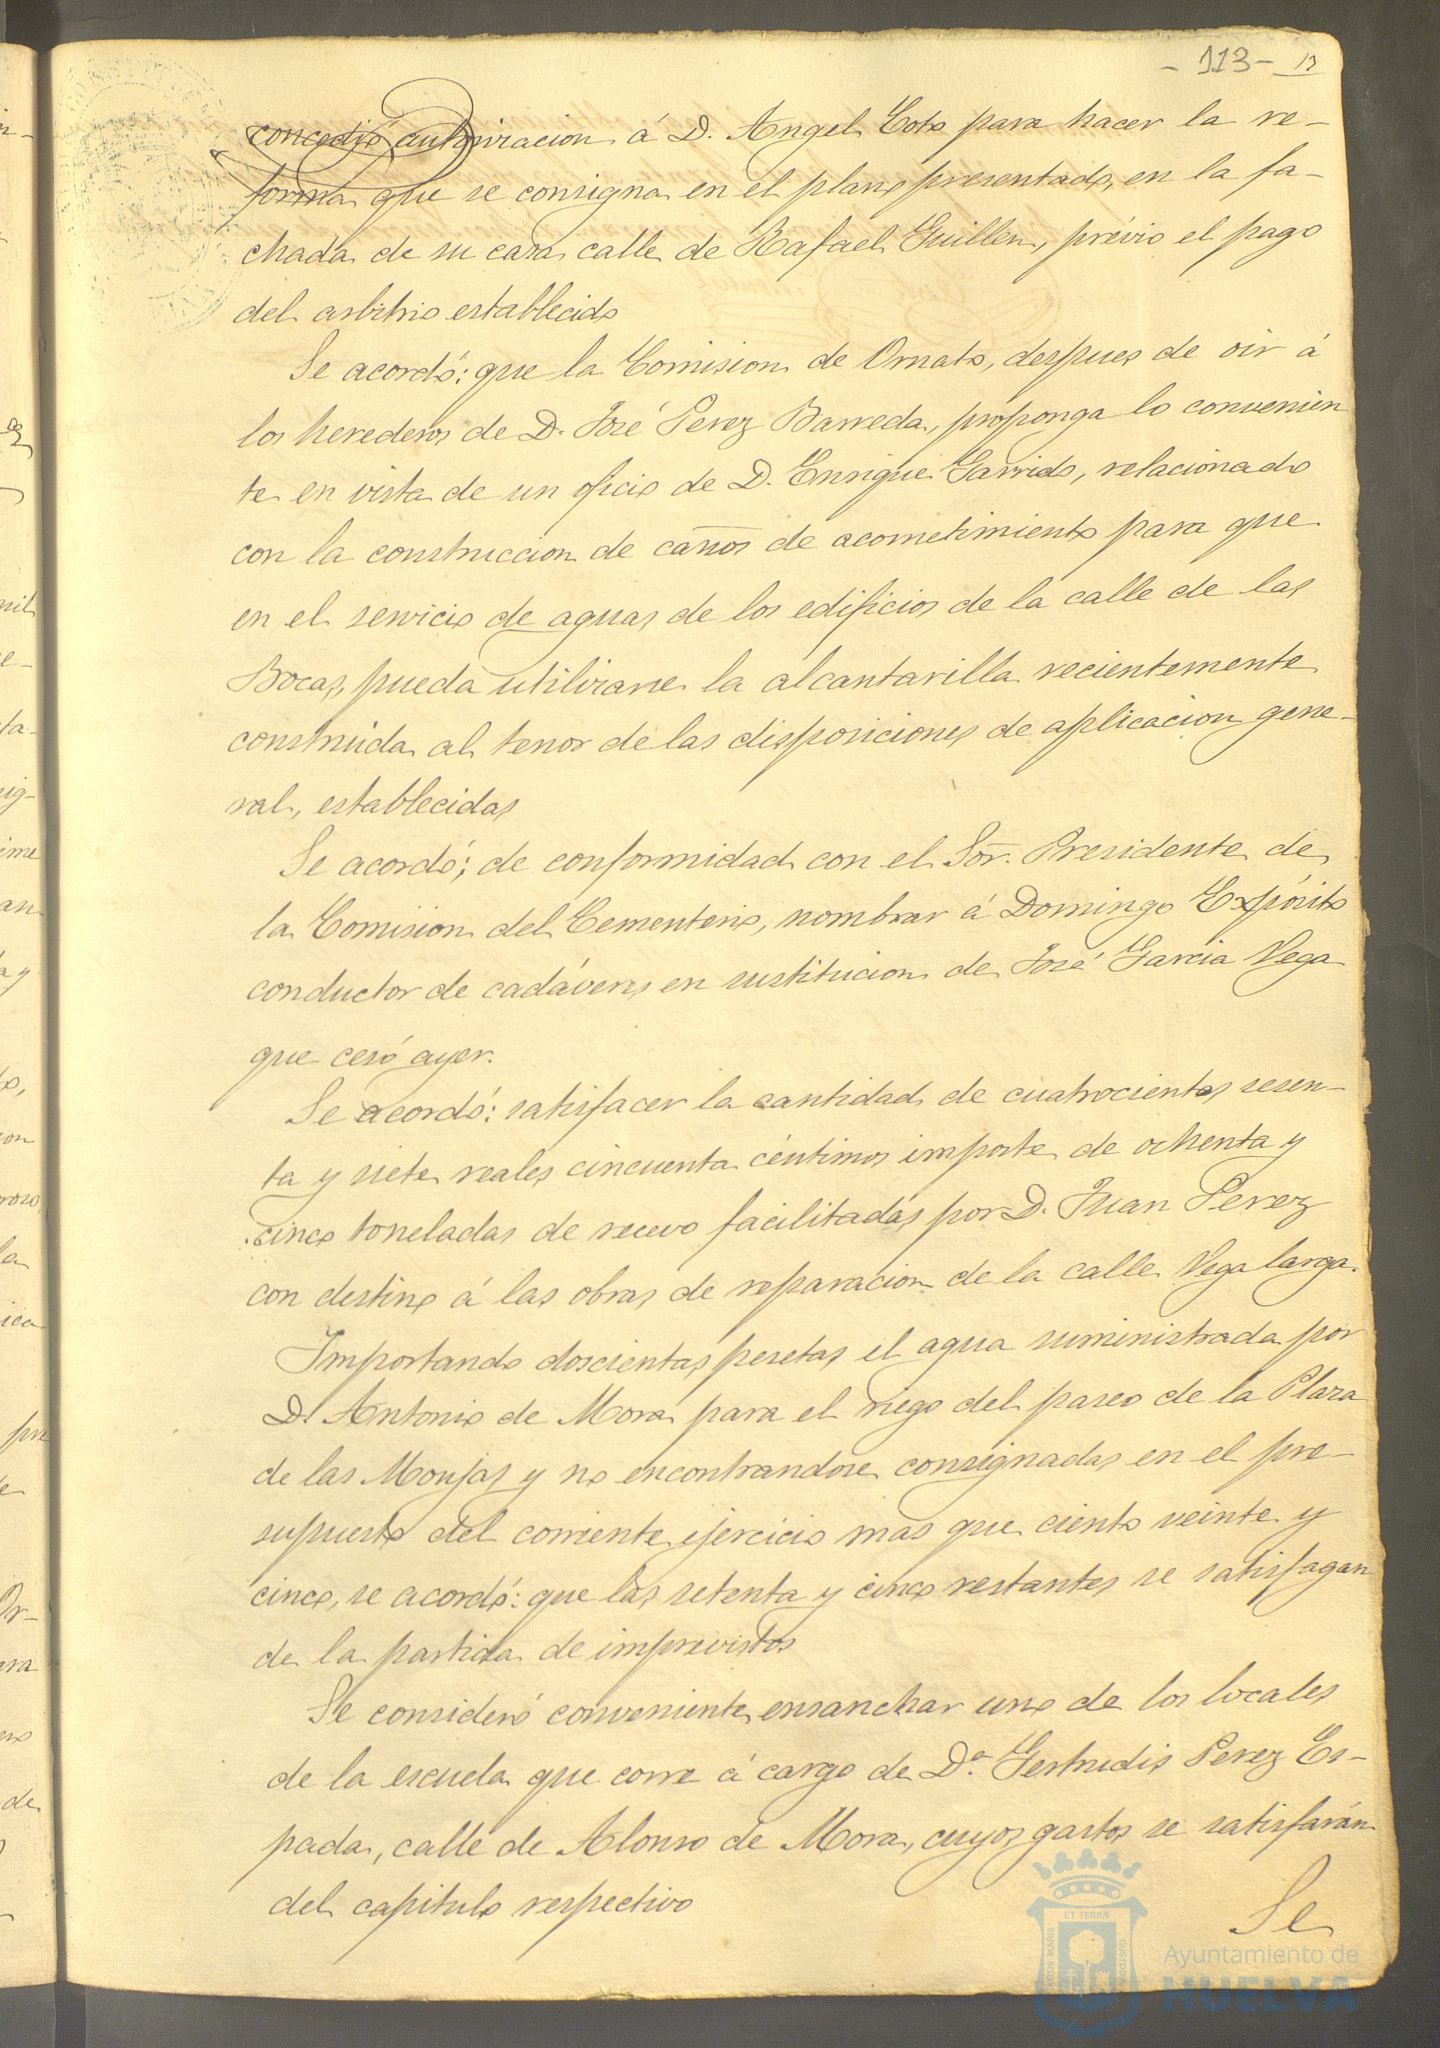 - 113 - 13
concedió autorizacion á D. Angel Coto para hacer la re-
forma que se consigna en el plano presentado, en la fa-
chada de su casa calle de Rafael Guillen, prévio el pago
del arbitrio establecido
Se acordó: que la Comision de Ornato, despues de oir á
los herederos de D. José Perez Barreda, proponga lo convenien
te en vista de un oficio de D. Enrique Garrido, relacionado
con la construccion de caños de acometimiento para que
en el servicio de aguas de los edificios de la calle de las
Bocas, pueda utilizarse la alcantarilla recientemente
construida al tenor de las disposiciones de aplicacion gene-
ral, establecidas
Se acordó; de conformidad con el Sor. Presidente de
la Comision del Cementerio, nombrar á Domingo Expósito
conductor de cadáveres en sustitucion de José Garcia Vega
que cesó ayer.
Se acordó: satisfacer la cantidad de cuatrocientos sesen-
ta y siete reales cincuenta céntimos importe de ochenta y
cinco toneladas de recevo facilitadas por D. Juan Perez
con destino á las obras de reparacion de la calle Vega larga.
Importando doscientas pesetas el agua suministrada por
D. Antonio de Mora para el riego del paseo de la Plaza
de las Monjas y no encontrandose consignadas en el pre-
supuesto del corriente ejercicio mas que ciento veinte y
cinco, se acordó: que las setenta y cinco restantes se satisfagan
de la partida de imprevistos
Se consideró conveniente ensanchar uno de los locales
de la escuela que corre á cargo de Dª Gertrudis Perez Es-
pada, calle de Alonso de Mora, cuyos gastos se satisfarán
del capitulo respectivo
Se
ET TERRÆ
PORTUS MARIS
CUSTODIA
Ayuntamiento de
HUELVA